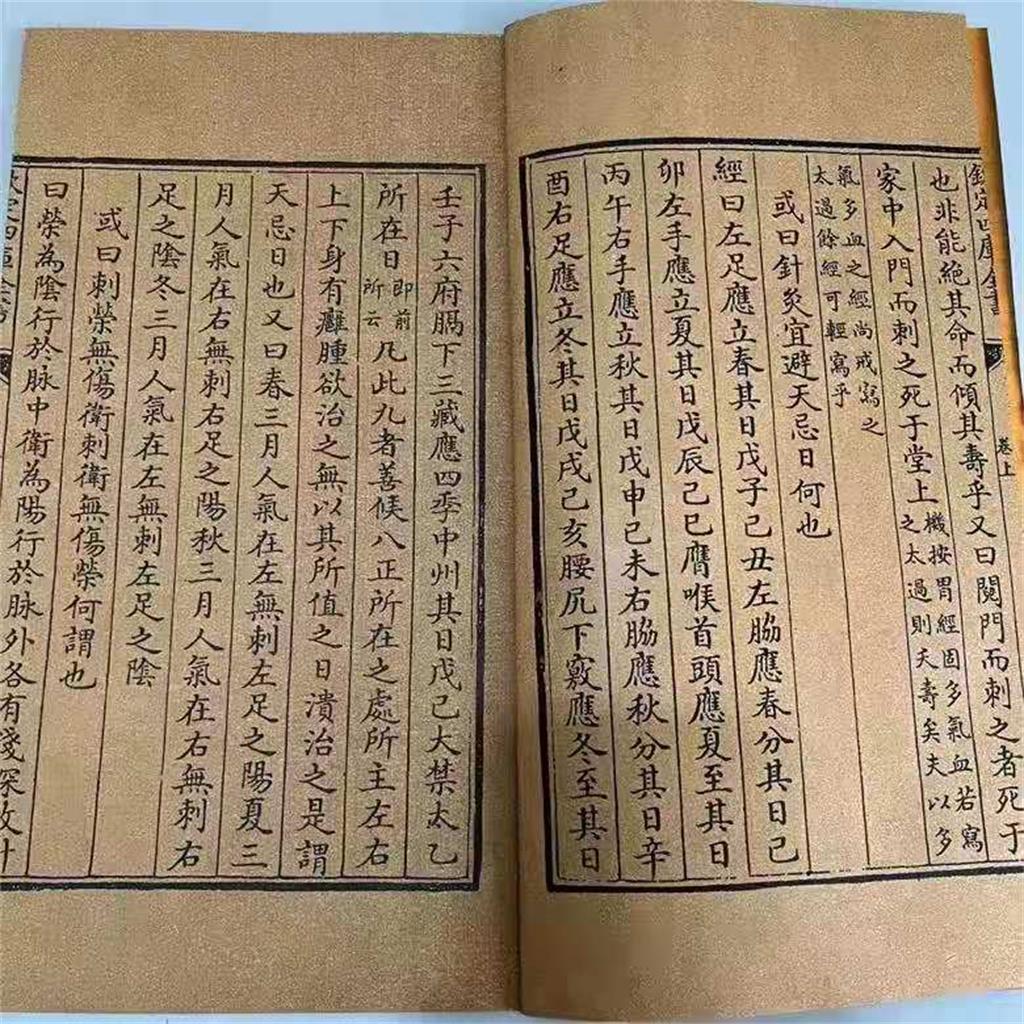 欽定四庫全書
卷上
也非能絕其命而傾其壽乎又曰閱門而刺之者死于
家中入門而刺之死于堂上機按胃經固多氣血若寫之太過則夭壽矣夫以多
氣多血之經尚戒寫之太過餘經可輕寫乎
或曰針灸宜避天忌日何也
經曰左足應立春其日戊子己丑左脇應春分其日己
卯左手應立夏其日戊辰己巳膺喉首頭應夏至其日
丙午右手應立秋其日戊申己未右脇應秋分其日辛
酉右足應立冬其日戊戌己亥腰尻下竅應冬至其日
壬子六府膈下三藏應四季中州其日戊己大禁太乙
所在日即前所云凡此九者善候八正所在之處所主左右
上下身有癰腫欲治之無以其所值之日潰治之是謂
天忌日也又曰春三月人氣在左無刺左足之陽夏三
月人氣在右無刺右足之陽秋三月人氣在右無刺右
足之陰冬三月人氣在左無刺左足之陰
或曰刺榮無傷衛刺衛無傷榮何謂也
曰榮為陰行於脉中衛為陽行於脉外各有淺深故